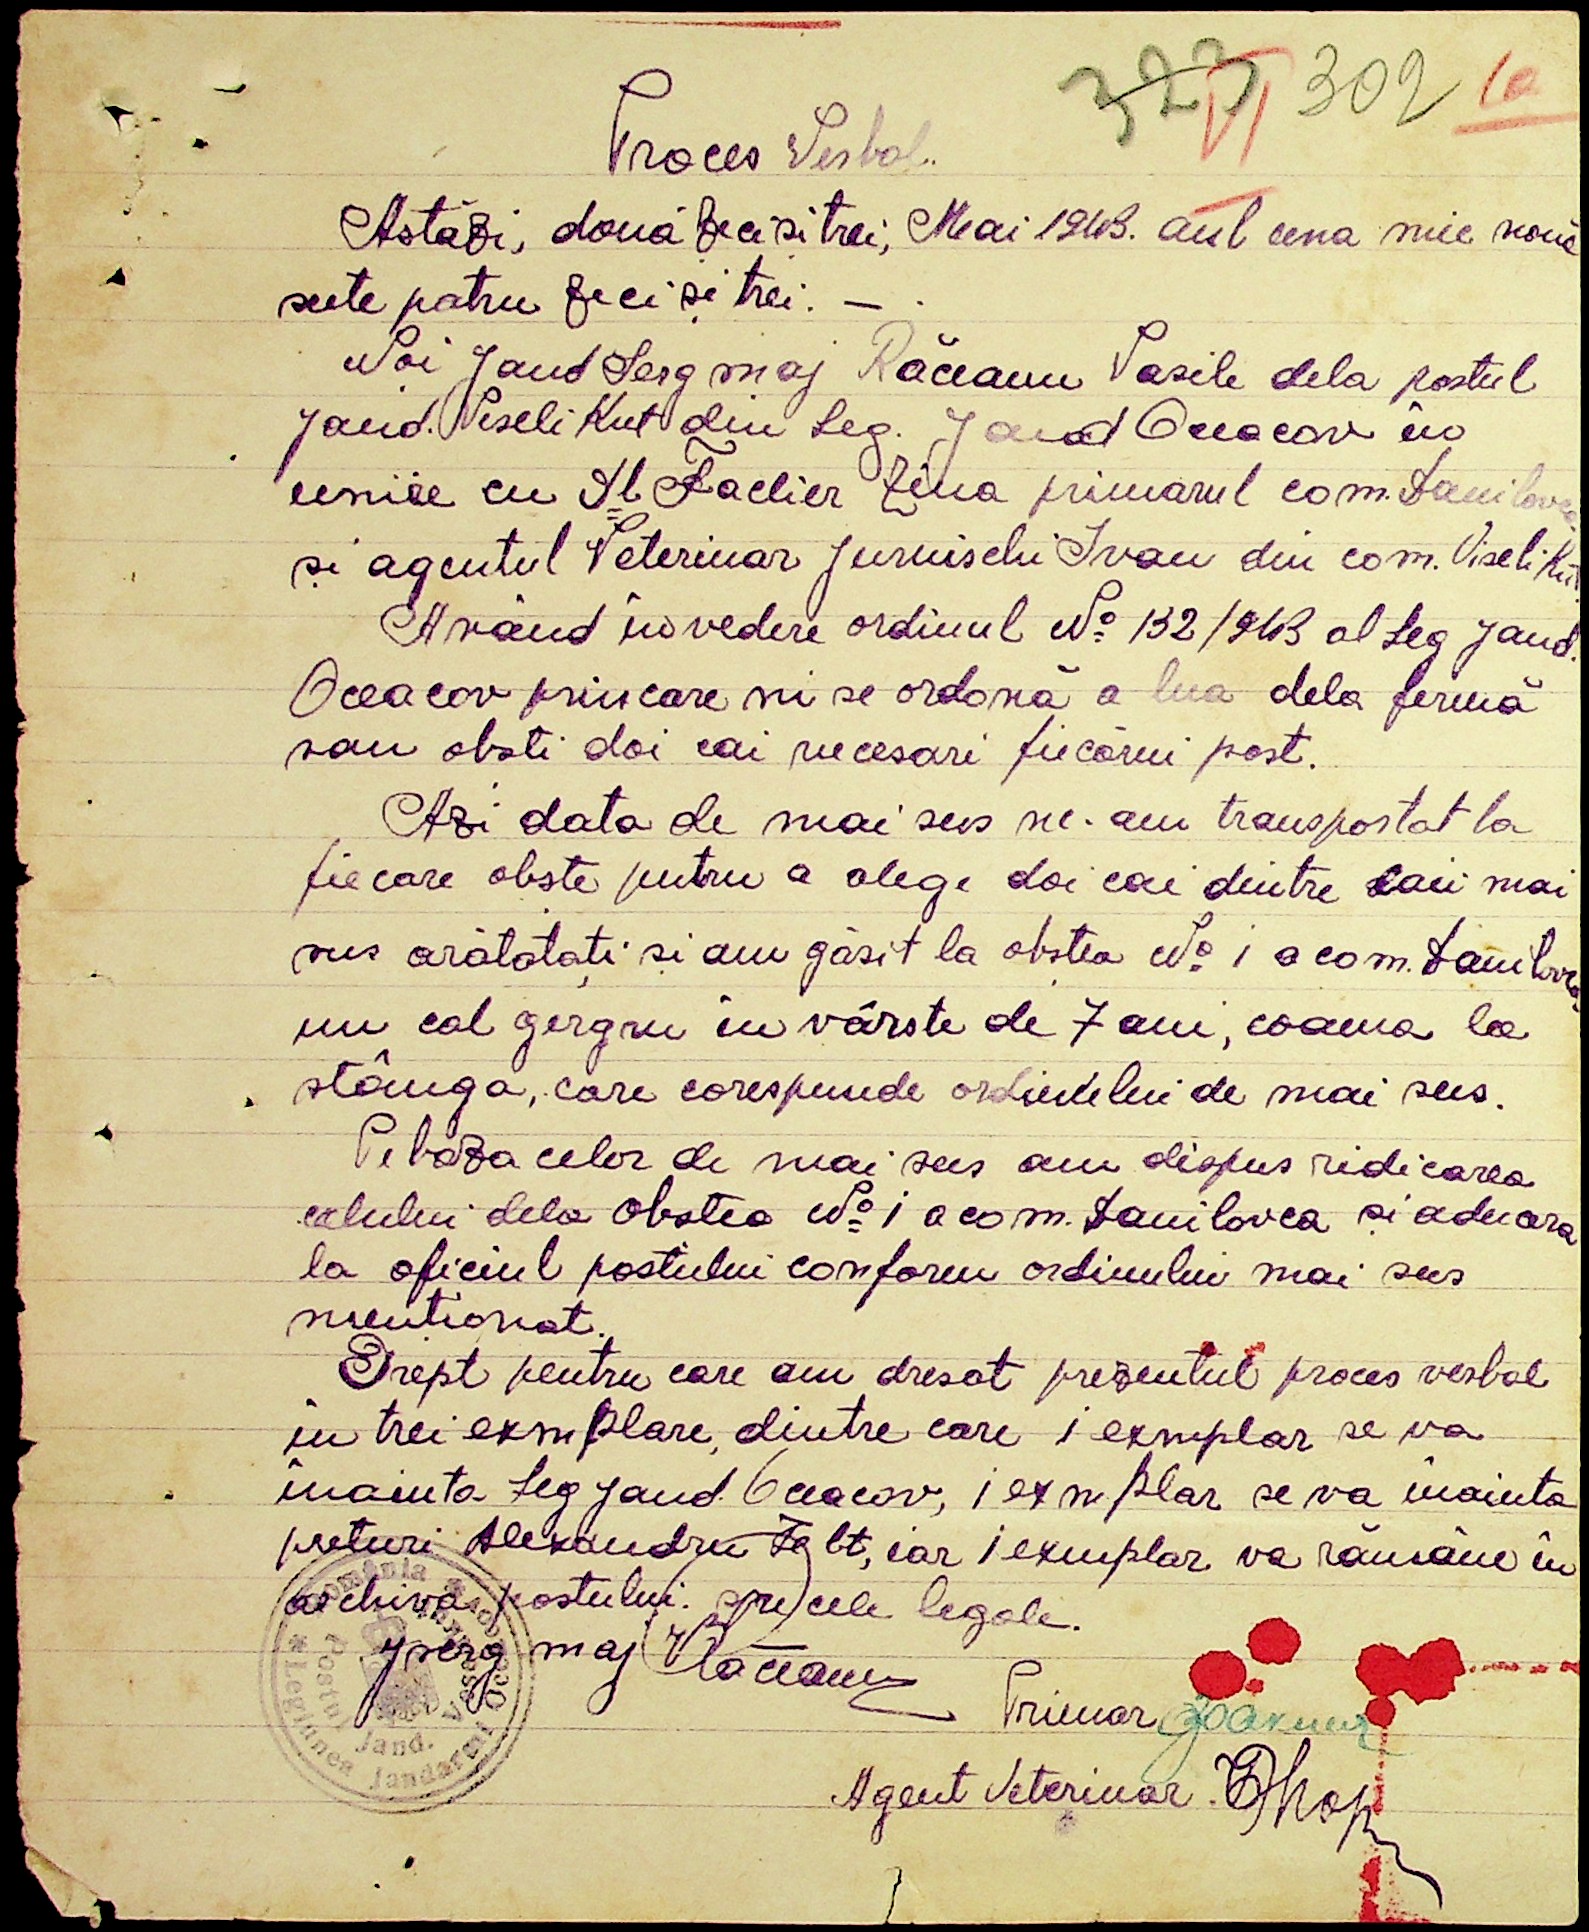 323 VI 302 10
Proces Verbal.
Astăzi, două zeci și trei, Mai 1943. anul una mie nouă
sute patru zeci și trei. —
Noi Jand Serg maj Răceanu Vasile dela postul
Jand. Viseli Kut din Leg. Jand Oceacov în
unire cu Dl Faclier Zina primarul com. Danilovca
și agentul Veterinar Jurnischi Ivan din com. Viseli Kut.
Având în vedere ordinul No 132/943 al Leg Jand.
Oceacov prin care ni se ordonă a lua dela fermă
sau obsti doi cai necesari fiecărui post.
Azi data de mai sus ne-am transportat la
fiecare obste pntru a alege doi cai dintre caii mai
sus arătatați și am găsit la obstea No 1 a com. Danilovca
un cal gergru în vârste de 7 ani, coama la
stânga, care corespunde ordinului de mai sus.
Pe baza celor de mai sus am dispus ridicarea
calului dela Obstea No 1 a com. Danilovca și aducara
la oficiul postului conform ordinului mai sus
mentionat.
Drept pentru care am dresat prezentul proces verbal
în trei exmplare, dintre care 1 exmplar se va
înainta Leg Jand. Oceacov, 1 exmplar se va înainta
preturi Alexandru Felt, iar 1 exmplar va rămâne în
archiva postului. spre cele legale.
J serg maj Răceanu
Primar
Agent Veterinar.
România
Legiunea Jandarmi Oceacov
Postul Jand.